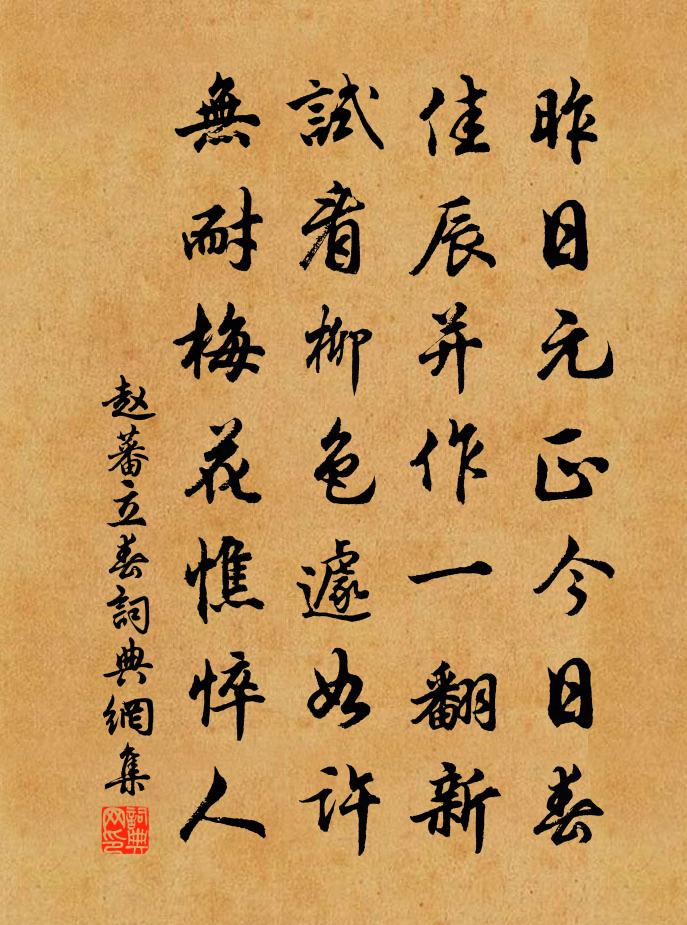 昨日元正今日春
佳辰并作一翻新
試看柳色遽如許
無耐梅花憔悴人
赵蕃立春詞典網集
詞典网印